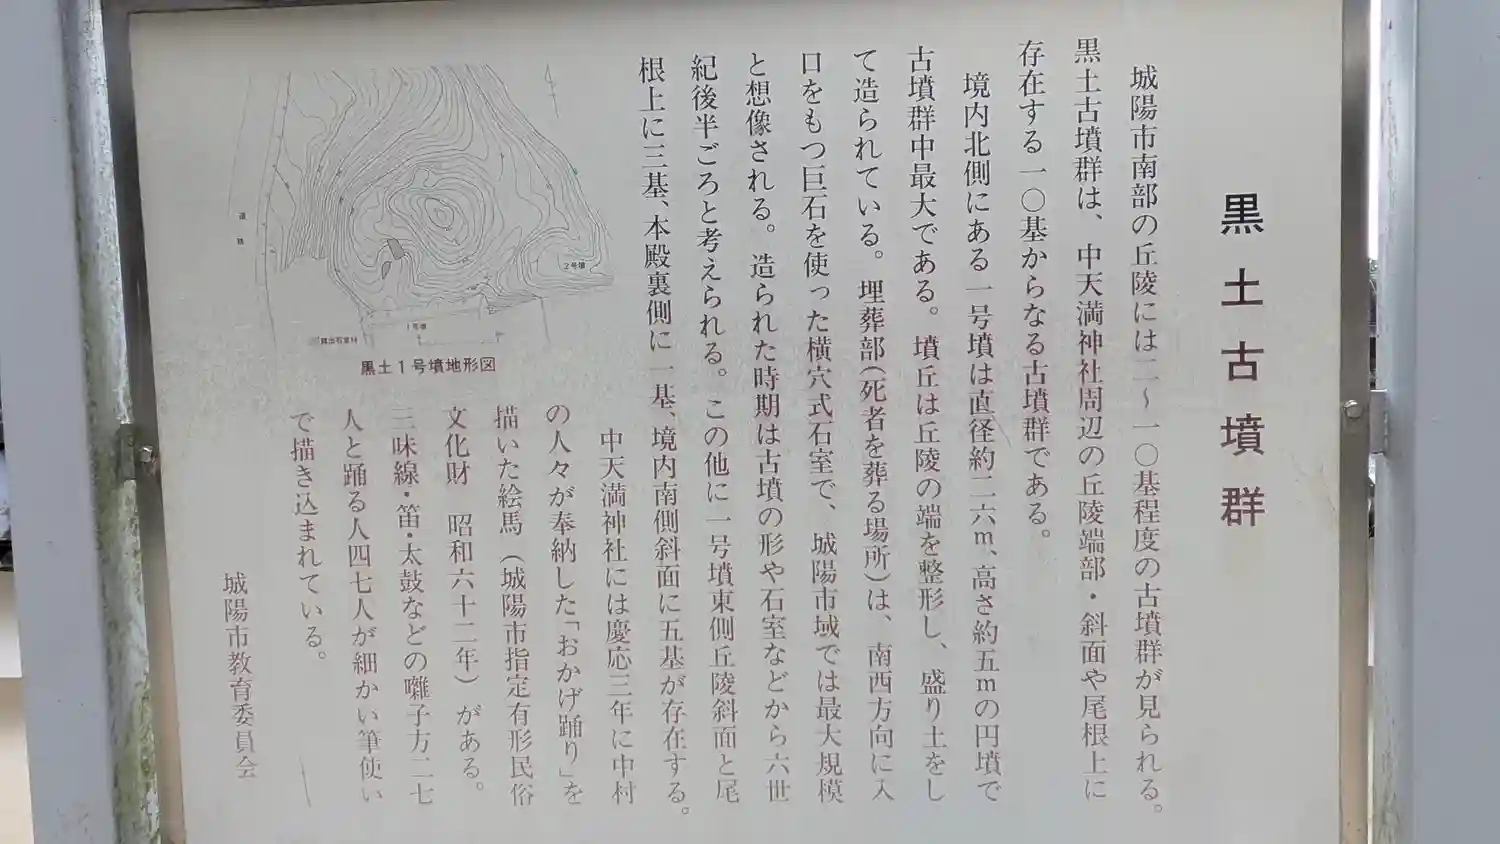 黒土古墳群
城陽市南部の丘陵には二～一〇基程度の古墳群が見られる。
黒土古墳群は、中天満神社周辺の丘陵端部・斜面や尾根上に
存在する一〇基からなる古墳群である。
境内北側にある一号墳は直径約二六m、高さ約五mの円墳で
古墳群中最大である。墳丘は丘陵の端を整形し、盛り土をし
て造られている。埋葬部(死者を葬る場所)は、南西方向に入
口をもつ巨石を使った横穴式石室で、城陽市域では最大規模
と想像される。造られた時期は古墳の形や石室などから六世
紀後半ごろと考えられる。この他に一号墳東側丘陵斜面と尾
根上に三基、本殿裏側に一基、境内南側斜面に五基が存在する。
中天満神社には慶応三年に中村
の人々が奉納した「おかげ踊り」を
描いた絵馬(城陽市指定有形民俗
文化財 昭和六十二年)がある。
三味線・笛・太鼓などの囃子方二七
人と踊る人四七人が細かい筆使い
で描き込まれている。
城陽市教育委員会
道路
2号墳
1号墳
露出石室材
黒土1号墳地形図